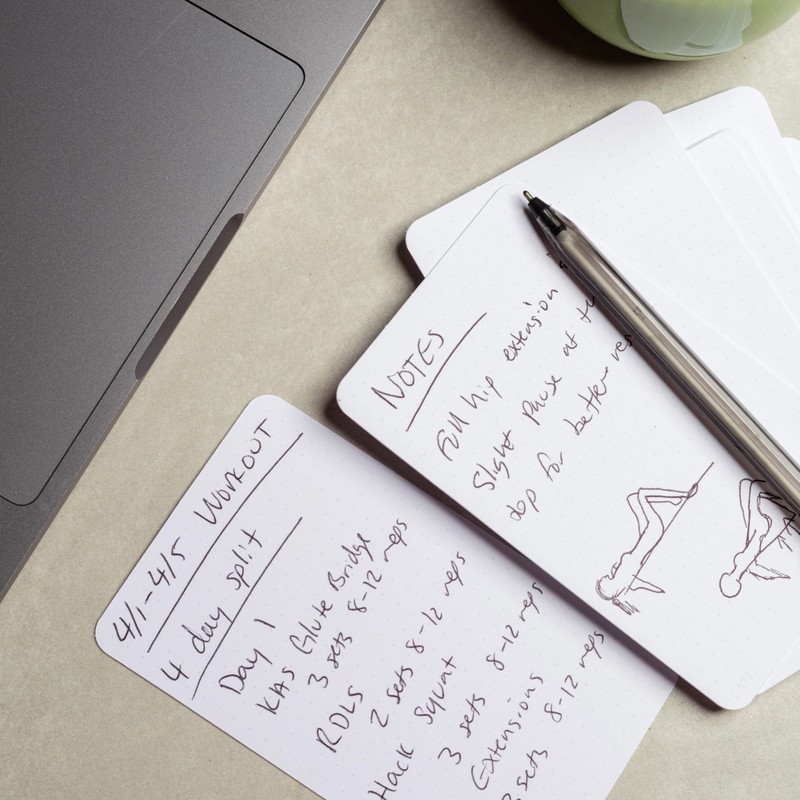 4/1-4/5 WORKOUT
4 day split
Day 1
KAS Glute Bridge
3 sets 8-12 reps
RDLS
2 sets 8-12 reps
Hack Squat
3 sets 8-12 reps
Extensions
sets 8-12 reps
NOTES
Full hip extension
Slight pause at
top for better